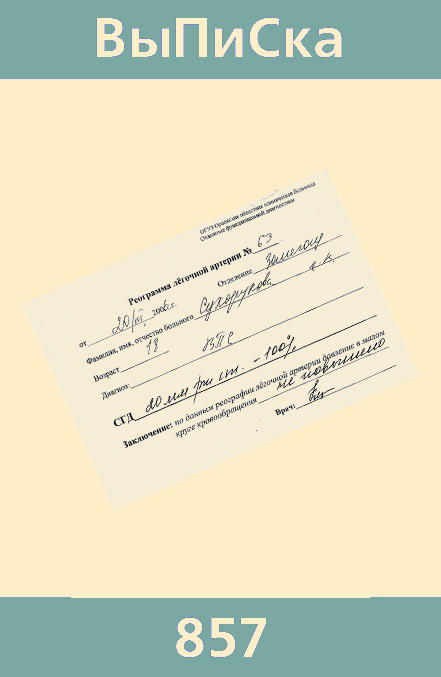 ВыПиСка
ОГУЗ Орловская областная клиническая больница
Отделение функциональной диагностики
Реограмма лёгочной артерии № 63
от 20/VI 2006 г. Отделение
Фамилия, имя, отчество больного Сухорукова
Возраст 18
Диагноз: ВПС
СГД 20 мм рт ст. - 100%
Заключение: по данным реографии лёгочной артерии давление в малом
круге кровообращения не повышено
Врач:
857